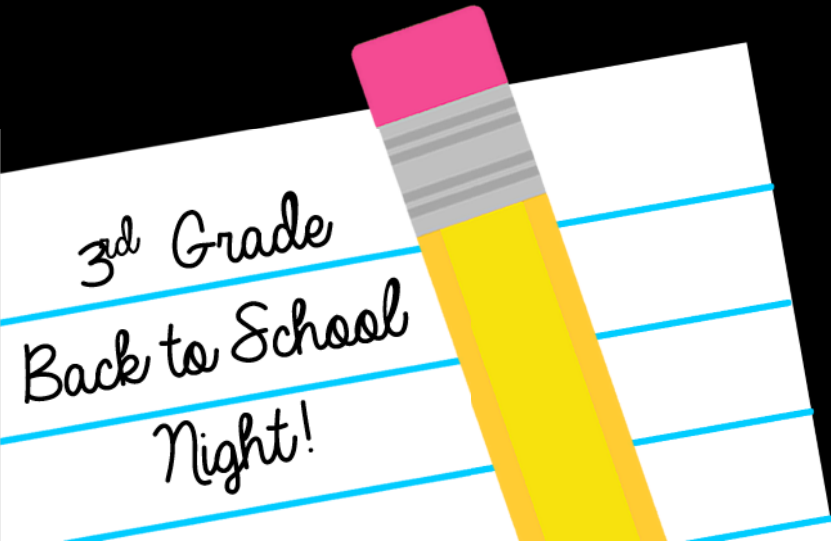 3rd Grade
Back to School
Night!